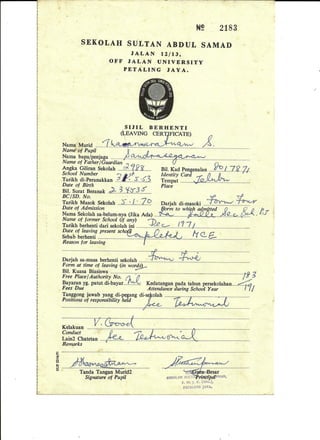 Nº 2183
SEKOLAH SULTAN ABDUL SAMAD
JALAN 12/13,
OFF JALAN UNIVERSITY
PETALING JAYA.
SIJIL BERHENTI
(LEAVING CERTIFICATE)
Nama Murid
Name of Pupil
Nama bapa/penjaga
Name of Father/Guardian
Angka Giliran Sekolah 2988 Bil. Kad Pengenalan
School Number Identity Card
Tarikh di-Peranakkan Tempat
Date of Birth Place
Bil. Surat Beranak
BC/SD. No.
Tarikh Masok Sekolah 5-1-70 Darjah di-masoki Form Four
Date of Admission (form to which admitted
Nama Sekolah sa-belum-nya (Jika Ada) La Salle Sec. Sch. P.J
Name of former School (if any)
Tarikh berhenti dari sekolah ini Dec. 1971
Date of leaving present school
Sebab berhenti Completed MCE
Reason for leaving
Darjah sa-masa berhenti sekolah Form Five
Form at time of leaving (in words)
Bil. Kuasa Biasiswa
Free Place/Authority No.
Bayaran yg. patut di-bayar Nil Kedatangan pada tahun persekolahan
Fees Due Attendance during School Year
Tanggong jawab yang di-pegang di-sekolah
Positions of responsibility held See Testimonial
Kelakuan V. Good
Conduct
Lain2 Chatetan See Testimonial
Remarks
Tanda Tangan Murid2 Guru Besar
Signature of Pupil Principal
PETALING JAYA.